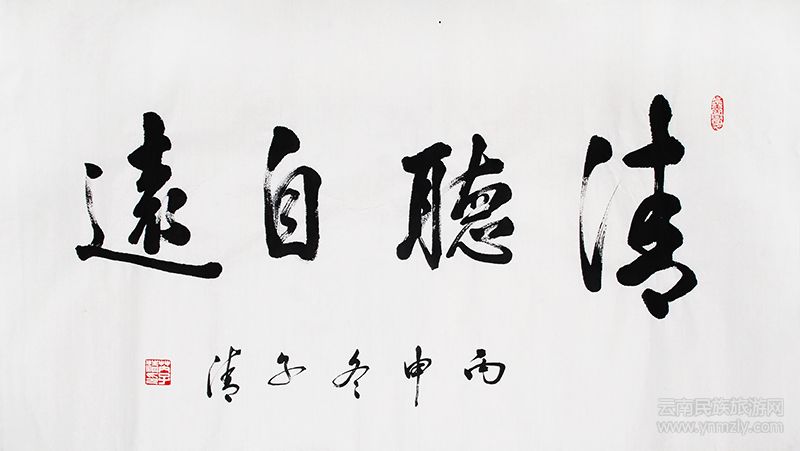 清聽自遠
丙申冬子清
云南民族旅游网
www.ynmzly.com